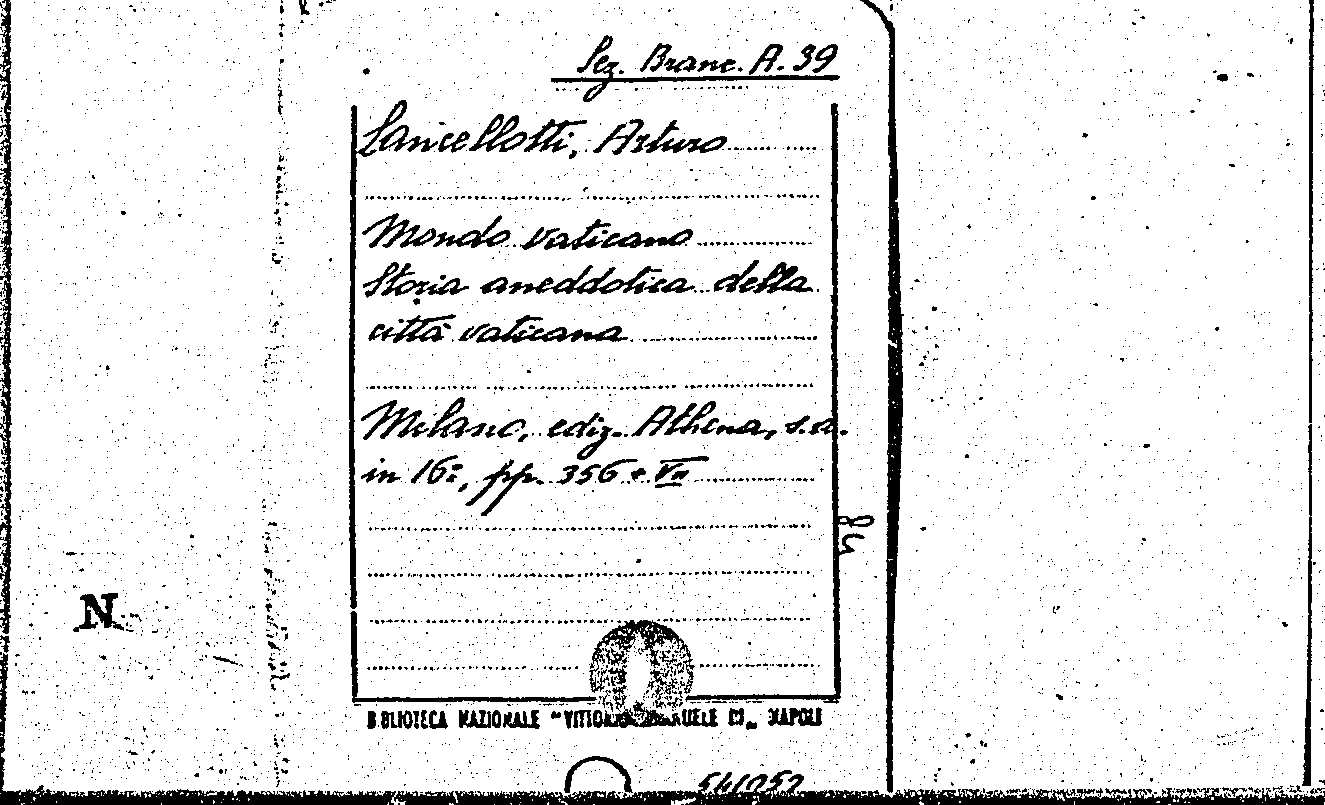 Sez. Branc. A. 39
Lancellotti, Arturo
Mondo vaticano
Storia aneddotica della
città vaticana
Milano, ediz. Athena, s.a.
in 16º, pp. 356 + VII
BIBLIOTECA NAZIONALE "VITTORIO EMANUELE III" NAPOLI
N